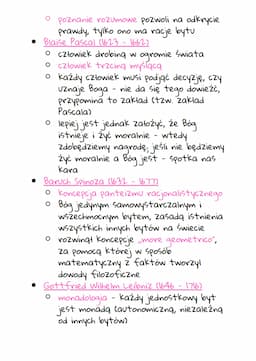 poznanie rozumowe pozwoli na odkrycie
prawdy, tylko ono ma racje bytu
Blaise Pascal (1623 - 1662)
człowiek drobiną w ogromie świata
człowiek trzciną myślącą
każdy człowiek musi podjąć decyzję, czy
uznaje Boga - nie da się tego dowieźć,
przypomina to zakład (tzw. zakład
Pascala)
lepiej jest jednak założyć, że Bóg
istnieje i żyć moralnie - wtedy
zdobędziemy nagrodę, jeśli nie będziemy
żyć moralnie a Bóg jest - spotka nas
kara
Baruch Spinoza (1632 - 1677)
koncepcja panteizmu racjonalistycznego
Bóg jedynym samowystarczalnym i
wszechmocnym bytem, zasadą istnienia
wszystkich innych bytów na świecie
rozwinął koncepcje „more geometrico",
za pomocą której w sposób
matematyczny z faktów tworzył
dowody filozoficzne
Gottfried Wilhelm Leibniz (1646 - 1716)
monadologia - każdy jednostkowy byt
jest monadą (autonomiczną, niezależną
od innych bytów)